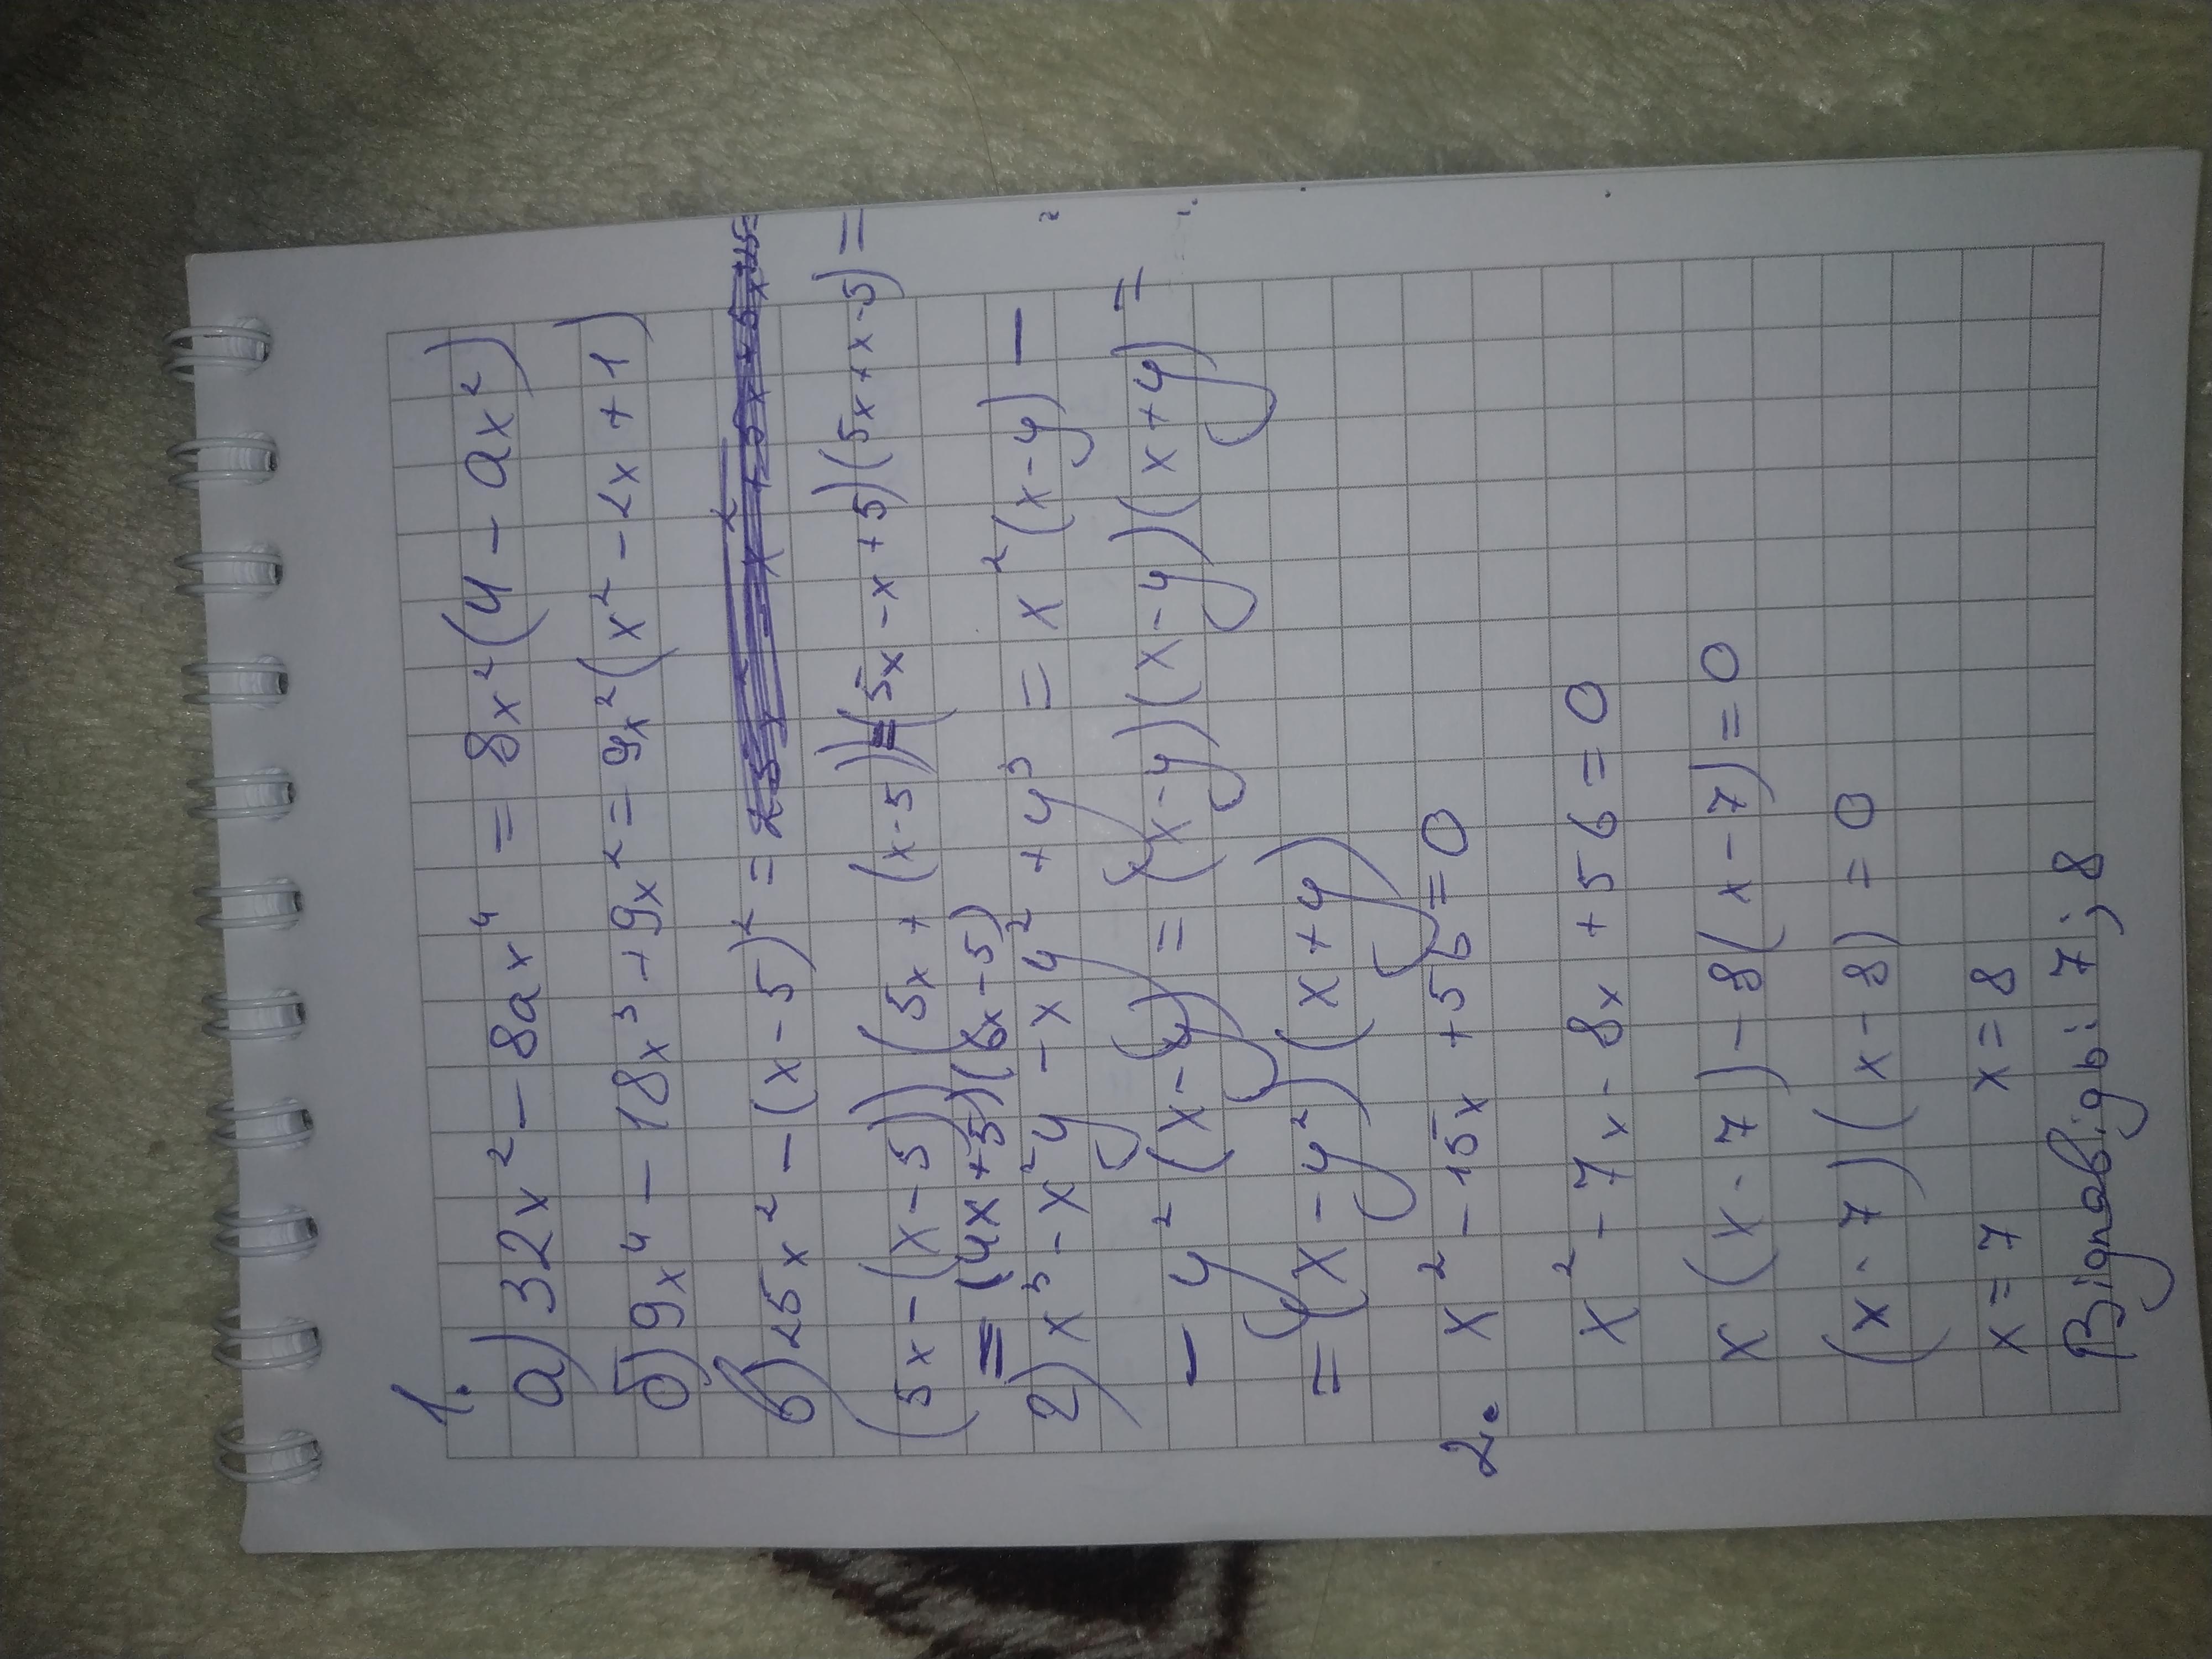 1.
а) 32x² - 8ax⁴ = 8x²(4 - ax²)
б) 9x⁴ - 18x³ + 9x² = 9x²(x² - 2x + 1)
в) 25x² - (x - 5)² =
(5x - (x - 5)) (5x + (x - 5)) = (5x - x + 5)(5x + x - 5) =
= (4x + 5)(6x - 5)
г) x³ - x²y - xy² + y³ = x²(x - y) -
- y²(x - y) = (x - y)(x - y)(x + y) =
= (x - y²)(x + y)
2. x² - 15x + 56 = 0
x² - 7x - 8x + 56 = 0
x(x - 7) - 8(x - 7) = 0
(x - 7)(x - 8) = 0
x = 7 x = 8
Відповідь: 7; 8